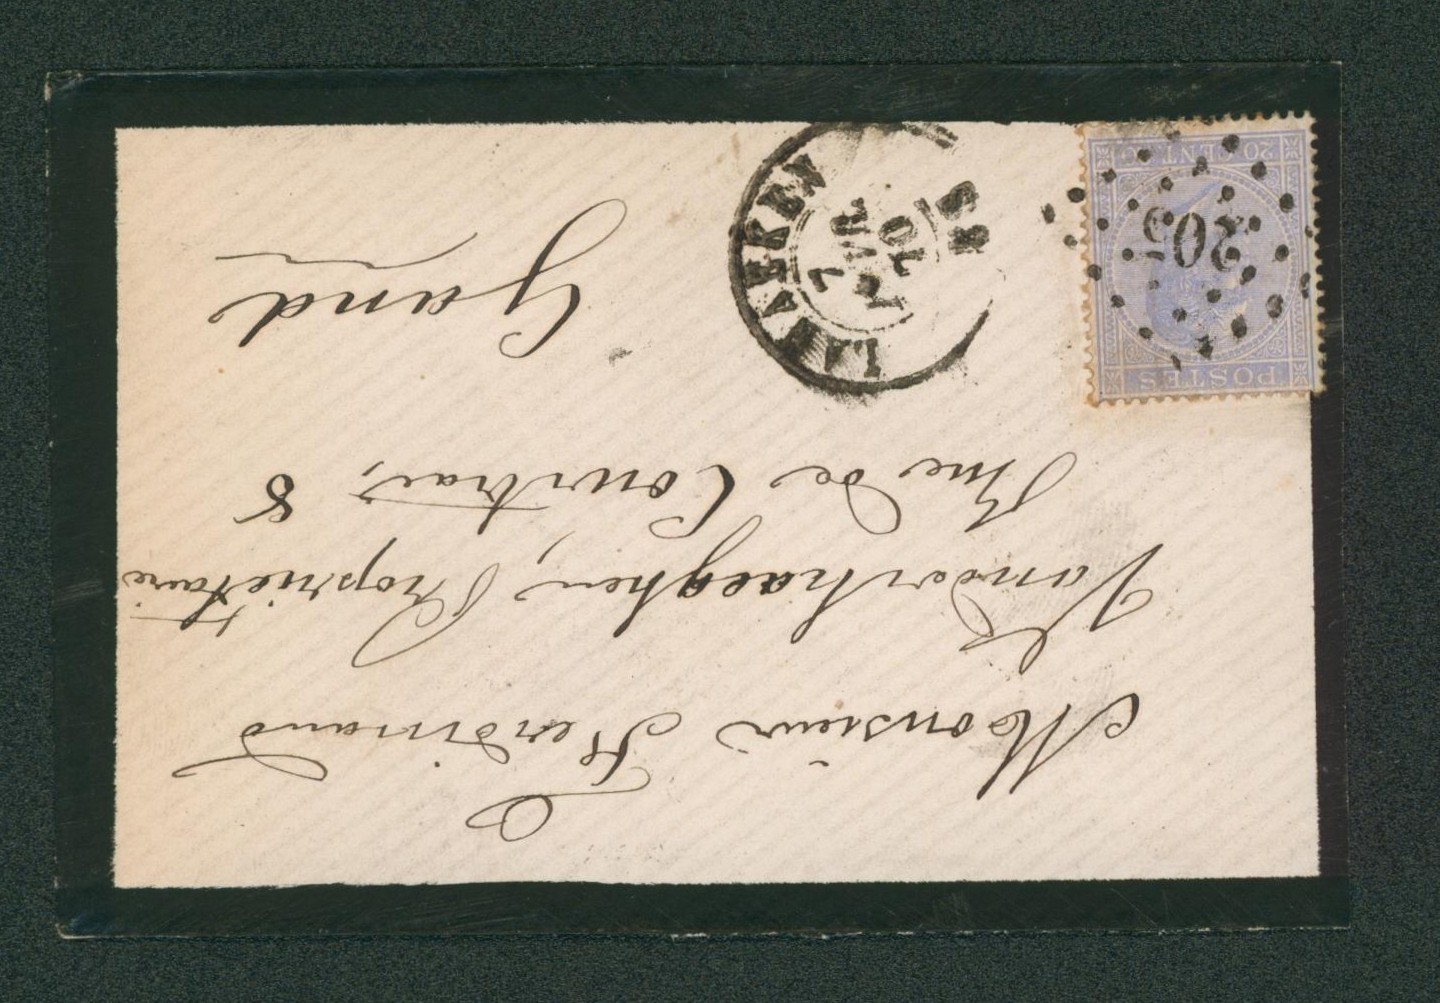 Monsieur Ferdinand
Vanderhaeghen, Propriétaire
Rue de Courtrai, 8
Gand
LAEKEN
7
AVRIL
10
POSTES
205
20 CENT